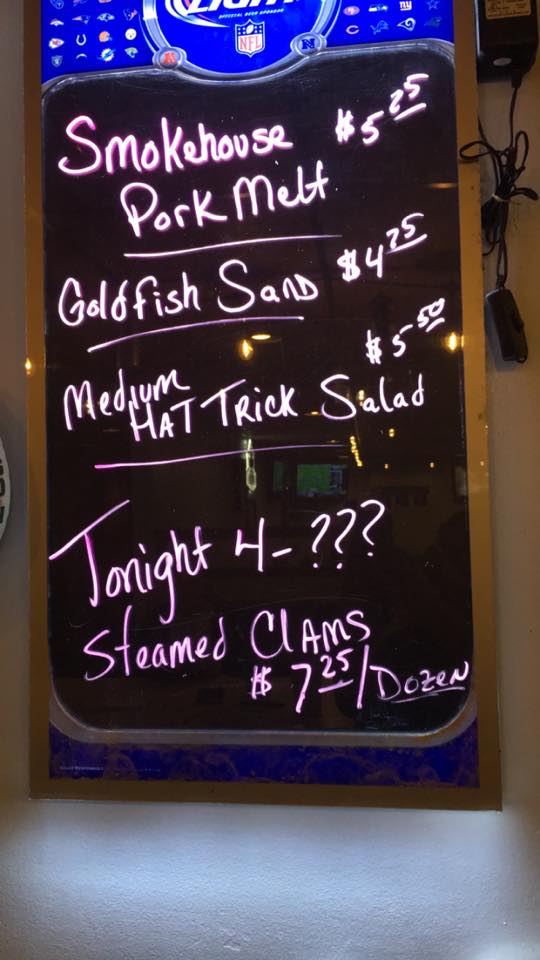 LIGHT
OFFICIAL BEER SPONSOR
NFL
A N
Smokehouse $5 25
Pork Melt
Goldfish Sand $4 25
$5 50
Medium
HAT TRICK Salad
Tonight 4-???
Steamed Clams
$7 25/Dozen